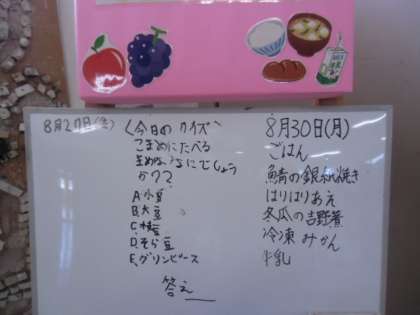 8月27日(金)
〈今日のクイズ〉
こまめにたべる
まめはなにでしょう
か??
A.小豆
B.大豆
C.枝豆
D.そら豆
E.グリンピース
答え
8月30日(月)
ごはん
鯖の銀紙焼き
はりはりあえ
冬瓜の吉野煮
冷凍みかん
牛乳